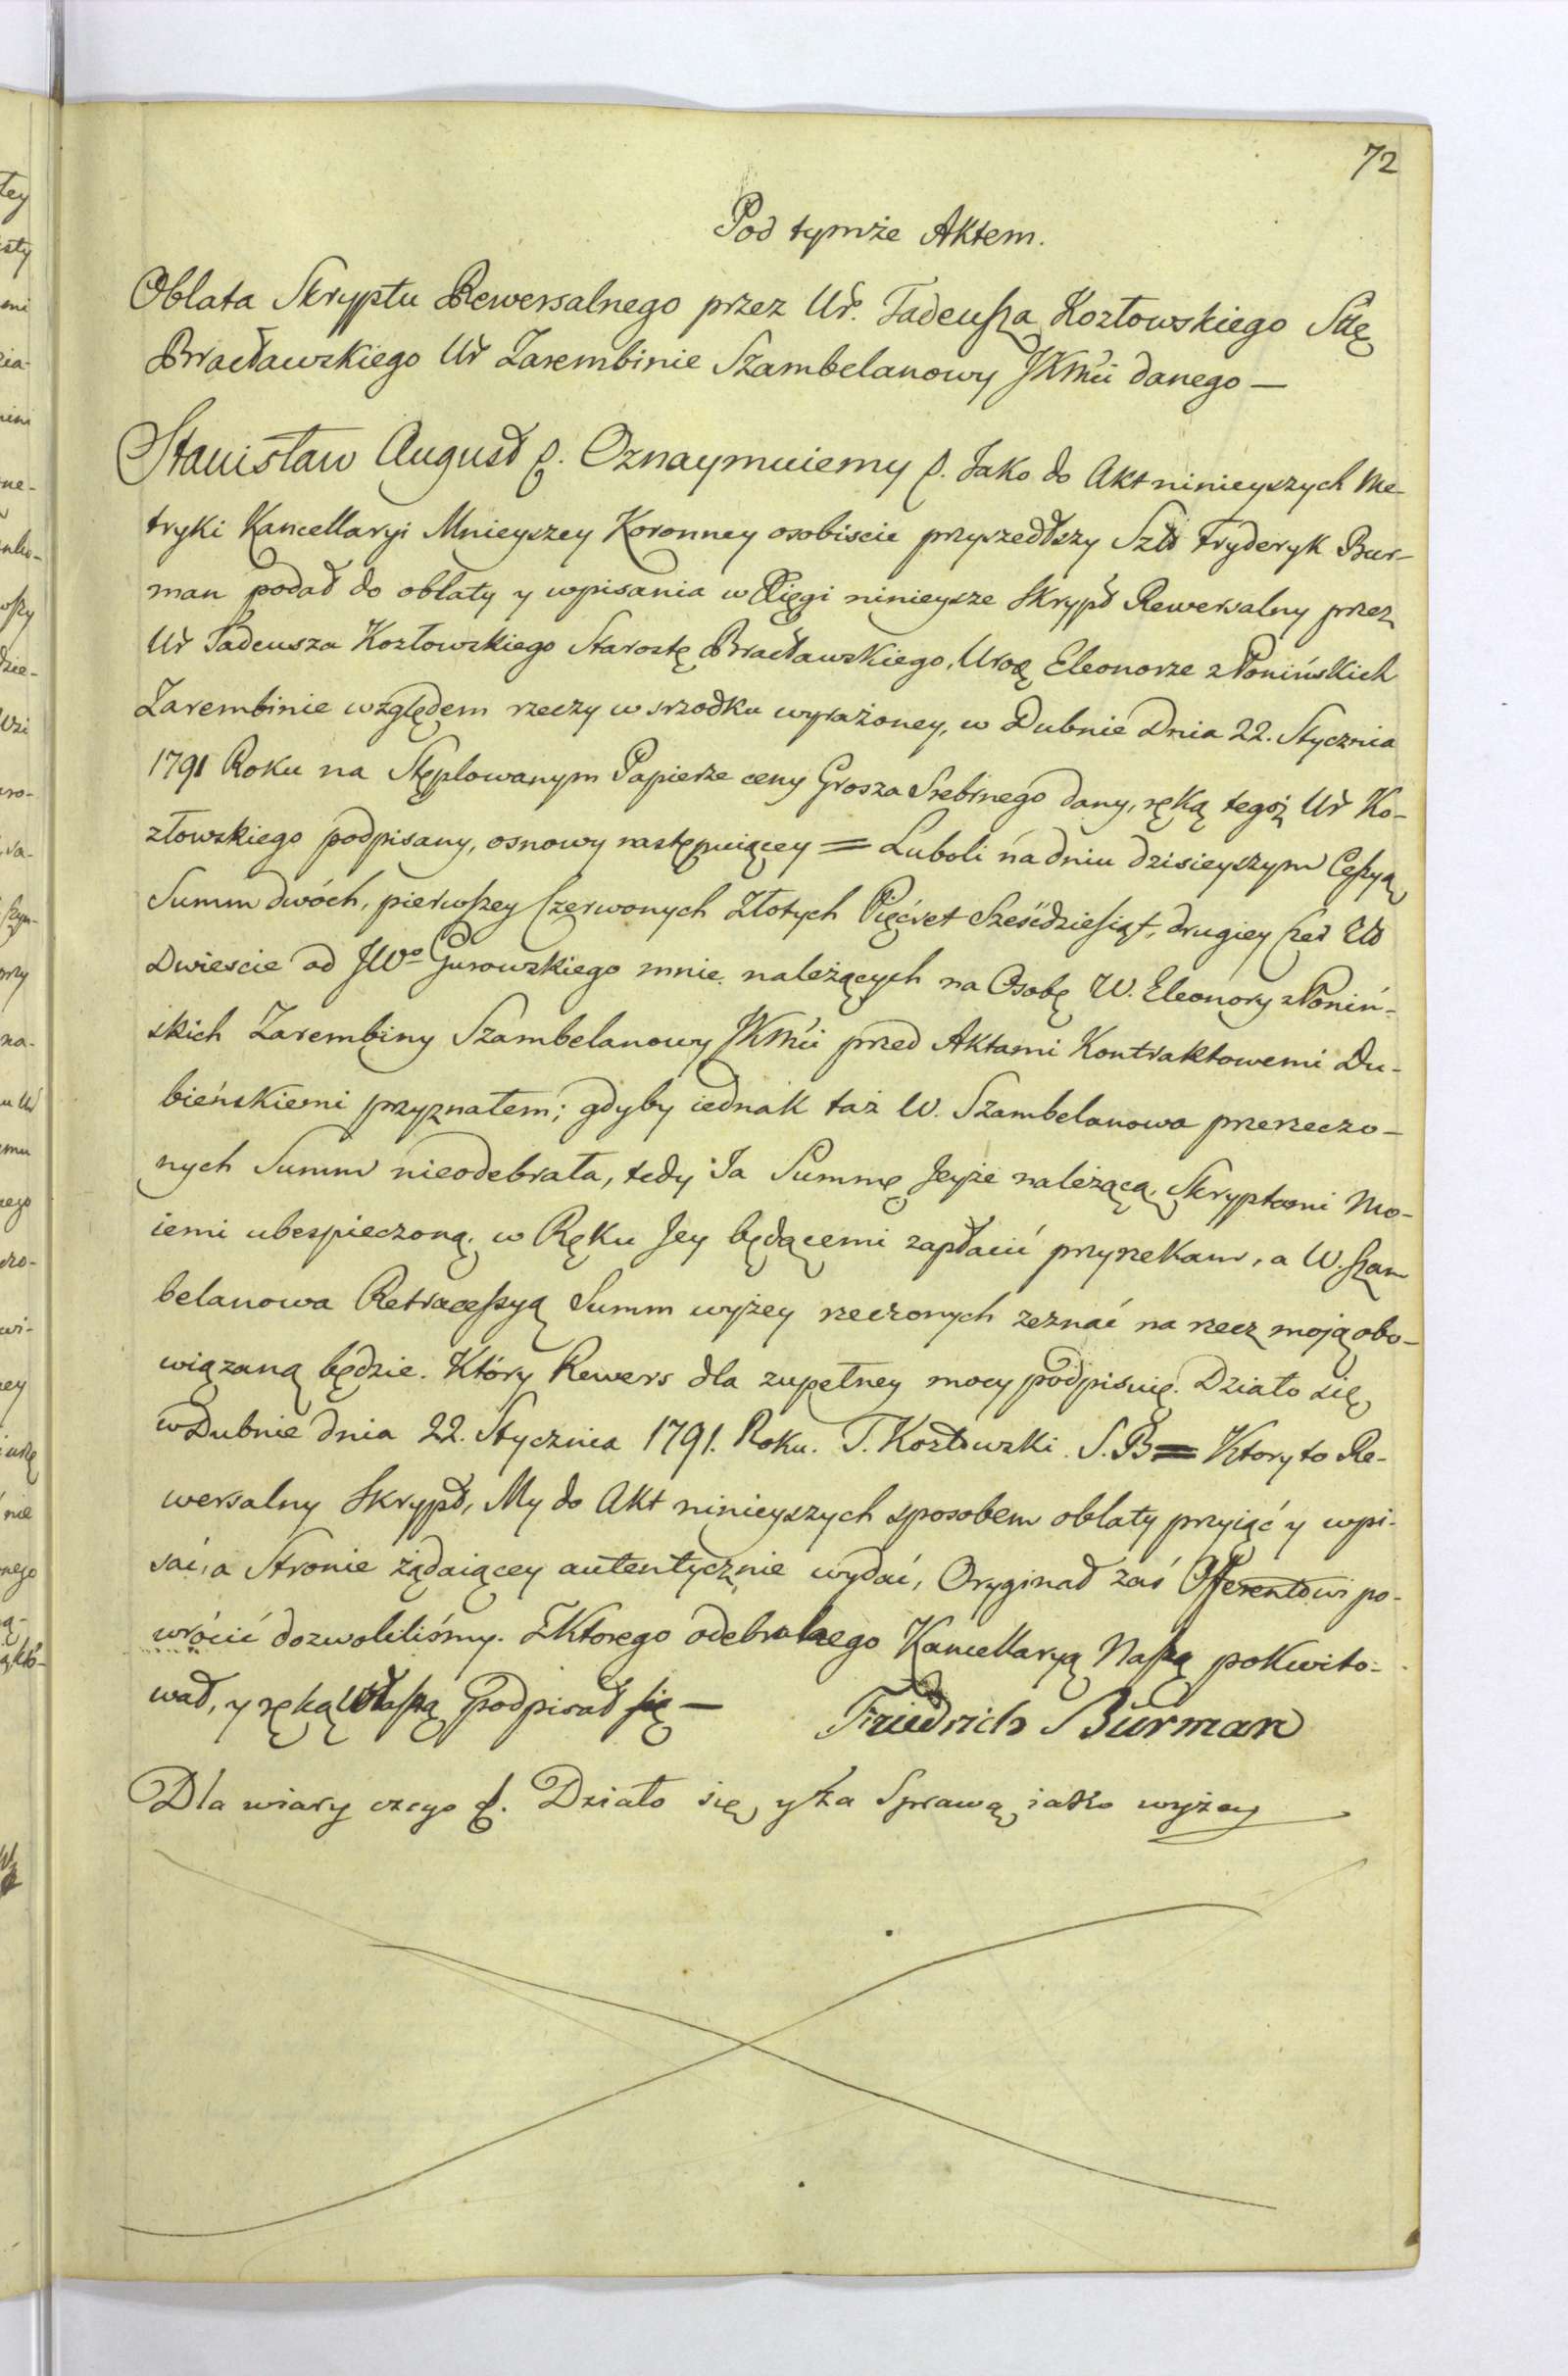 72
Pod tymże Aktem.
Oblata Skryptu Rewersalnego przez Ur. Tadeusza Kozłowskiego Sttę
Bracławskiego Ur Zarembinie Szambelanowy JKMci danego —
Stanisław August p. Oznaymuiemy p. Jako do Akt ninieyszych Me-
tryki Kancellaryi Mnieyszey Koronney osobiscie przyszedłszy Szld Fryderyk Bur-
man podał do oblaty y wpisania w Xięgi ninieysze Skrypt Rewersalny przez
Ur Tadeusza Kozłowskiego Starostę Bracławskiego, Urod Eleonorze z Ponińskich
Zarembinie względem rzeczy w srzodku wyrażoney, w Dubnie Dnia 22. Stycznia
1791 Roku na Stęplowanym Papierze ceny Grosza Srebrnego dany, ręką tegoż Ur Ko-
złowskiego podpisany, osnowy następuiącey = Luboli na dniu dzisieyszym Cessyą
Summ dwóch, pierwszey Czerwonych Złotych Pięćset Sześćdziesiąt, drugiey Czer Zł
Dwiescie od JWo Gurowskiego mnie należących na Osobę W. Eleonory z Poniń-
skich Zarembiny Szambelanowy JKMci przed Aktami Kontraktowemi Du-
bieńskiemi przyznałem; gdyby iednak taż W. Szambelanowa przerzeczo-
nych Summ nieodebrała, tedy Ja Summę Jeyże należącą, Skryptami Mo-
iemi ubespieczoną, w Ręku Jey będącemi zapłacić przyrzekam, a W. Szam
belanowa Retrocessyą Summ wyżey rzeczonych zeznać na rzecz moją obo-
wiązaną będzie. Który Rewers dla zupełney mocy podpisuię. Działo się
w Dubnie dnia 22. Stycznia 1791. Roku. T. Kozłowski S. B = Ktory to Re-
wersalny Skrypt, My do Akt ninieyszych sposobem oblaty przyiąć y wpi-
sać, a Stronie żądaiącey autentycznie wydać, Oryginał zaś Offerentowi po-
wrócić dozwoliliśmy. Z Ktorego odebranego Kancellaryą Naszą pokwito-
wał, y ręką własną podpisał się —
Friedrich Burman
Dla wiary czego p. Działo się y za Sprawą iako wyżey